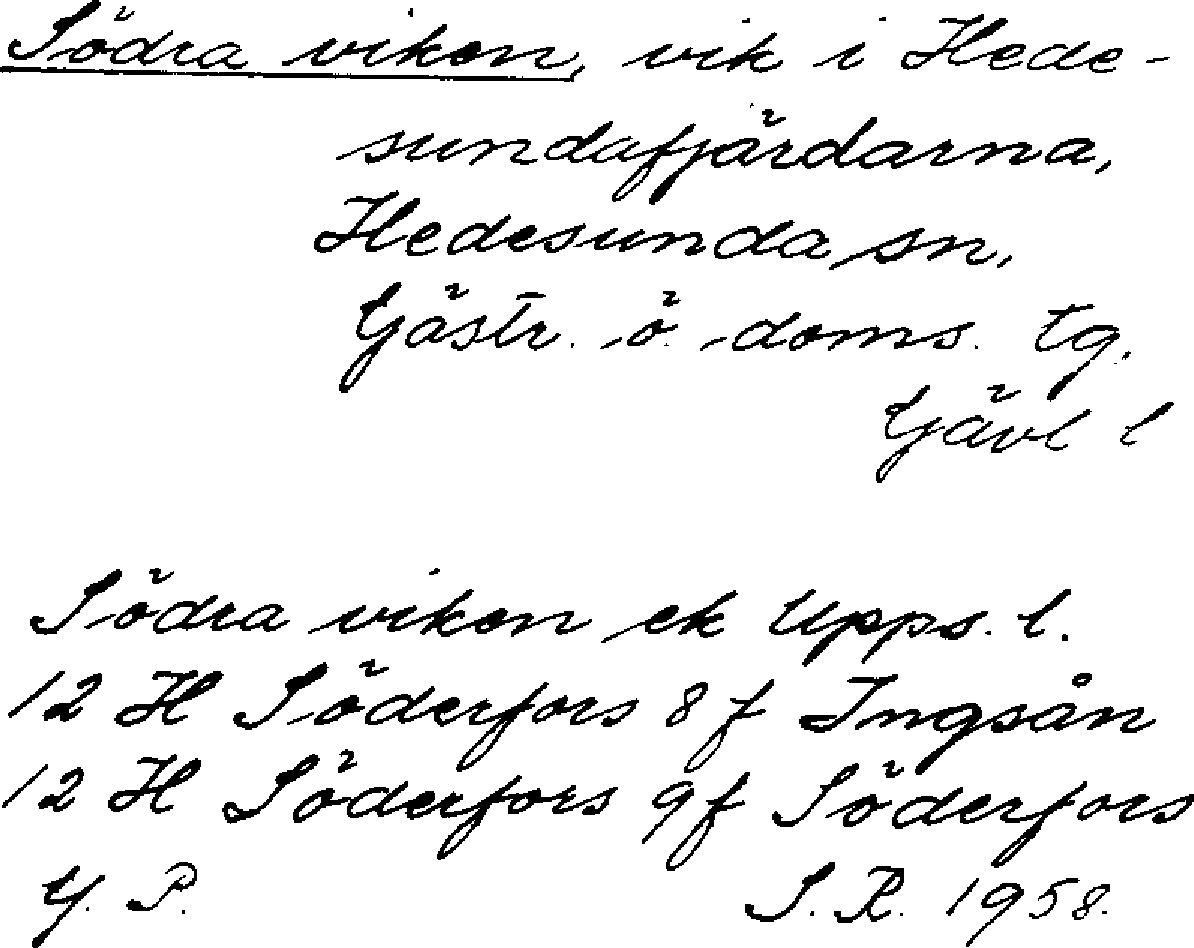 Södra viken, vik i Hede-
sundafjärdarna,
Hedesunda sn,
Gästr. ö. doms. tg.
Gävl l
Södra viken ek Upps. l.
12 H Söderfors 8 f Ingsån
12 H Söderfors 9 f Söderfors
G. P. S. R. 1958.